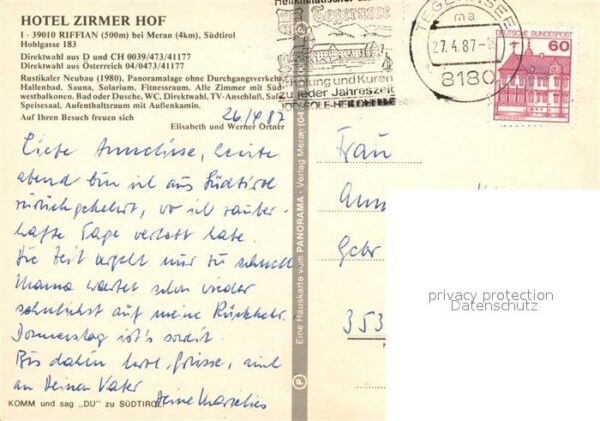 HOTEL ZIRMER HOF
I - 39010 RIFFIAN (500m) bei Meran (4km), Südtirol
Hohlgasse 183
Direktwahl aus D und CH 0039/473/41177
Direktwahl aus Österreich 04/0473/41177
Rustikaler Neubau (1980). Panoramalage ohne Durchgangsverkehr
Hallenbad. Sauna, Solarium, Fitnessraum. Alle Zimmer mit Süd
westbalkonen, Bad oder Dusche, WC, Direktwahl, TV-Anschluß, Safe
Speisesaal, Aufenthaltsraum mit Außenkamin.
Auf Ihren Besuch freuen sich
Elisabeth und Werner Ortner
26/4 87
Liebe Anneliese, heute
abend bin ich aus Südtirol
zurückgekehrt, wo ich zauber-
hafte Tage verlebt habe.
Die Zeit vergeht nur zu schnell
Mama wartet schon wieder
sehnlichst auf meine Rückkehr.
Donnerstag ist's soweit.
Bis dahin herzl. Grüsse, auch
an Deinen Vater
Deine
KOMM und sag „DU" zu SÜDTIROL
Eine Hauskarte vom PANORMA - Verlag Meran (04
Tegernsee
Erholung und Kuren
zu jeder Jahreszeit
JOD-SOLE-HEILQUELLE
TEGERNSEE
ma
27.4.87-1
8180
DEUTSCHE BUNDESPOST
60
Frau
Ann
Gebr
353
privacy protection
Datenschutz